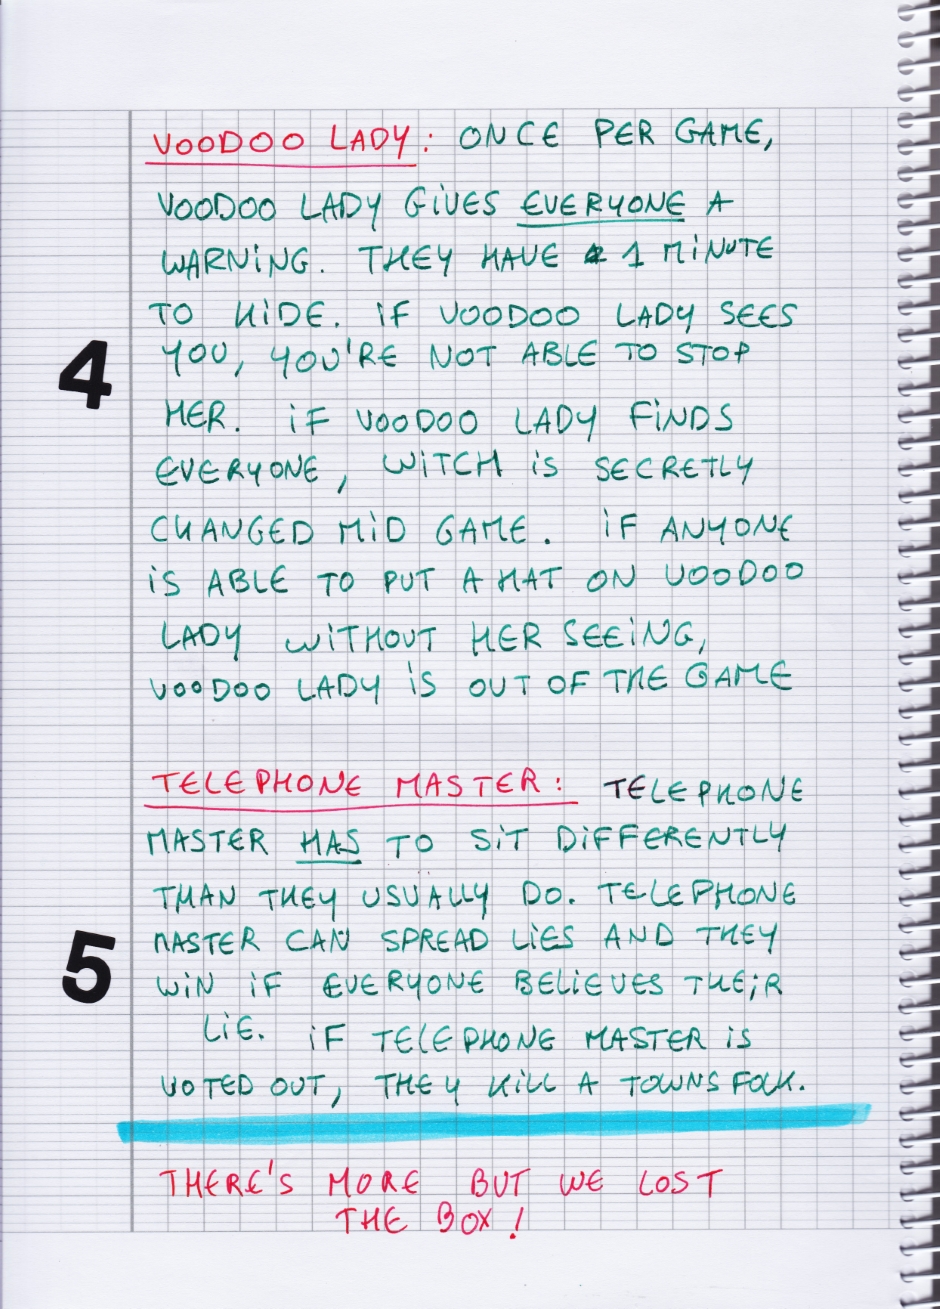 VOODOO LADY: ONCE PER GAME,
VOODOO LADY GIVES EVERYONE A
WARNING. THEY HAVE 1 MINUTE
TO HIDE. IF VOODOO LADY SEES
4
YOU, YOU'RE NOT ABLE TO STOP
HER. IF VOODOO LADY FINDS
EVERYONE, WITCH IS SECRETLY
CHANGED MID GAME. IF ANYONE
IS ABLE TO PUT A HAT ON VOODOO
LADY WITHOUT HER SEEING,
VOODOO LADY IS OUT OF THE GAME
TELEPHONE MASTER: TELEPHONE
MASTER HAS TO SIT DIFFERENTLY
THAN THEY USUALLY DO. TELEPHONE
5
MASTER CAN SPREAD LIES AND THEY
WIN IF EVERYONE BELIEVES THEIR
LIE. IF TELEPHONE MASTER IS
VOTED OUT, THEY KILL A TOWNSFOLK.
THERE'S MORE BUT WE LOST
THE BOX!